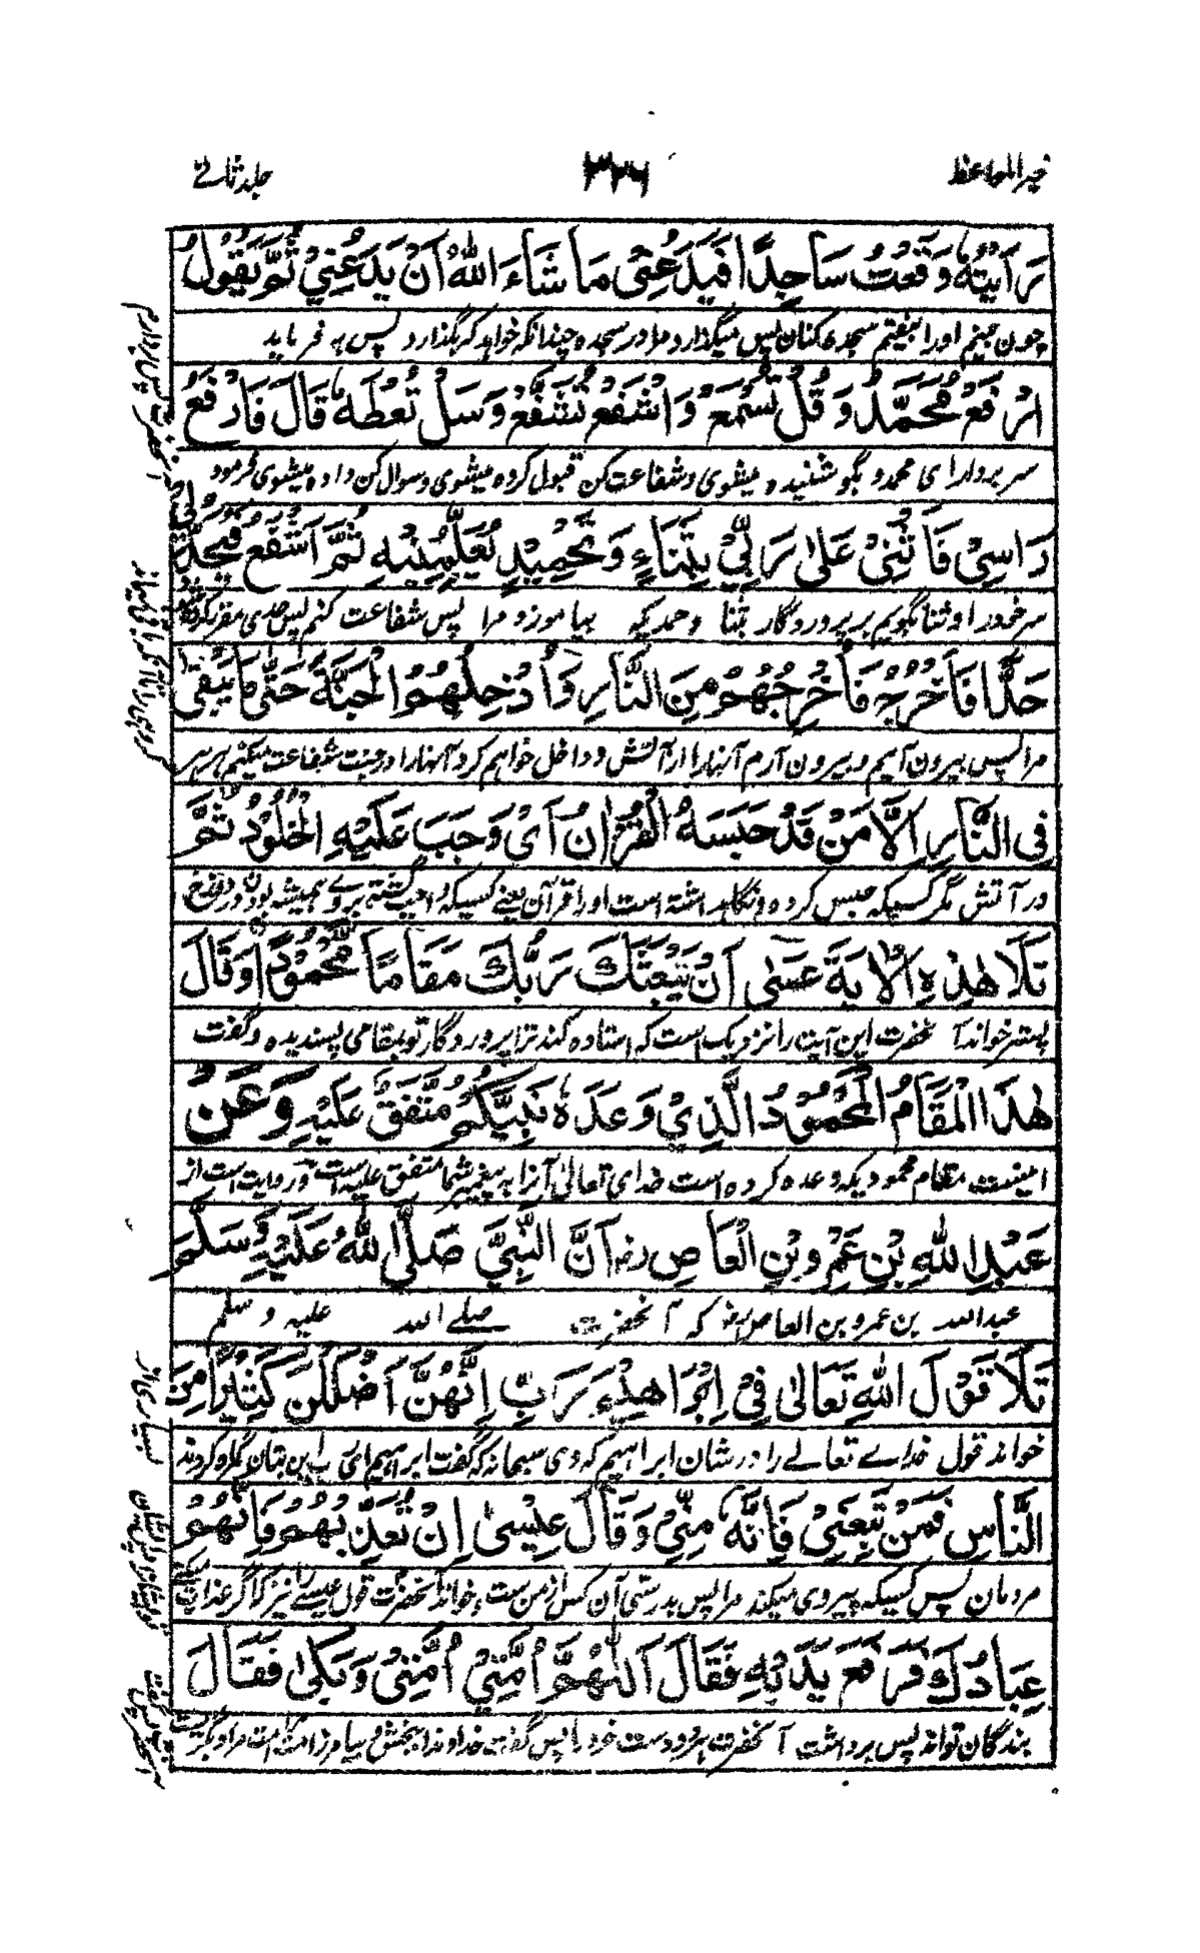 خیر المواعظ
۳۲۶
جلد ثانے
رَأَيْتُهُ وَقَعْتُ سَاجِدًا فَيَدَعُنِيْ مَا شَاءَ اللهُ أَنْ يَدَعَنِيْ ثُمَّ يَقُوْلُ
چون بینم اورا بیفتم سجده کنان پس میگذارد مرا در سجده چندانکه خواهد که بگذارد پس فرماید
ارْفَعْ مُحَمَّدُ وَقُلْ تُسْمَعْ وَاشْفَعْ تُشَفَّعْ وَسَلْ تُعْطَهْ قَالَ فَارْفَعُ
سر بردار ای محمد و بگو شنیده میشوی و شفاعت کن قبول کرده میشوی و سوال کن داده میشوی فرمود
رَاسِيْ فَاُثْنِيْ عَلٰى رَبِّيْ بِثَنَاءٍ وَتَحْمِيْدٍ يُعَلِّمُنِيْهِ ثُمَّ اَشْفَعُ فَيَحُدُّ لِيْ
سر خود را و ثنا گویم بر پروردگار بثنا و حمدیکه بیاموزد مرا پس شفاعت کنم پس حدی مقرر کرده شود
حَدًّا فَاَخْرُجُ فَاُخْرِجُهُمْ مِنَ النَّارِ وَاُدْخِلُهُمُ الْجَنَّةَ حَتّٰى مَا يَبْقٰى
مرا پس بیرون آیم و بیرون آرم آنهارا از آتش و داخل خواهم کرد آنهارا در جنت شفاعت میکنم هر سر
فِي النَّارِ اِلَّا مَنْ قَدْ حَبَسَهُ الْقُرْاٰنُ اَيْ وَجَبَ عَلَيْهِ الْخُلُوْدُ ثُمَّ
در آتش مگر کسیکه حبس کرده و نگاهداشته است اورا قرآن یعنے کسیکه واجب گشته بروے همیشه بودن در دوزخ
تَلَا هٰذِهِ الْاٰيَةَ عَسٰى اَنْ يَّبْعَثَكَ رَبُّكَ مَقَامًا مَّحْمُوْدًا وَقَالَ
پستر خواند آنحضرت این آیت را نزدیک است که استاده کند ترا پروردگار تو بمقامی پسندیده و گفت
هٰذَا الْمَقَامُ الْمَحْمُوْدُ الَّذِيْ وَعَدَهٗ نَبِيَّكُمْ مُتَّفَقٌ عَلَيْهِ وَعَنْ
اینست مقام محمود یکه وعده کرده است خدای تعالی آنرا به پیغمبر شما متفق علیه است و روایت است از
عَبْدِ اللهِ بْنِ عَمْرِو بْنِ الْعَاصِ رض اَنَّ النَّبِيَّ صَلَّى اللهُ عَلَيْهِ وَسَلَّمَ
عبدالله بن عمرو بن العاص رض که آنحضرت صلے الله علیه و سلم
تَلَا قَوْلَ اللهِ تَعَالٰى فِيْ اِبْرَاهِيْمَ رَبِّ اِنَّهُنَّ اَضْلَلْنَ كَثِيْرًا مِنَ
خواند قول خداے تعالے را در شان ابراهیم که وی سبحانه که گفت ابراهیم ای رب این بتان گمراه کردند
النَّاسِ فَمَنْ تَبِعَنِيْ فَاِنَّهٗ مِنِّيْ وَقَالَ عِيْسٰى اِنْ تُعَذِّبْهُمْ فَاِنَّهُمْ
مردمان پس کسیکه پیروی میکند مرا پس بدرستی آن کس از من ست و خواند آنحضرت قول عیسے را نیز که اگر عذاب
عِبَادُكَ فَرَفَعَ يَدَيْهِ فَقَالَ اَللّٰهُمَّ اُمَّتِيْ اُمَّتِيْ وَبَكٰى فَقَالَ
بندگان تواند پس برداشت آنحضرت هر دو دست خود را پس گفت خداوندا ببخش و بیامرز امت مرا